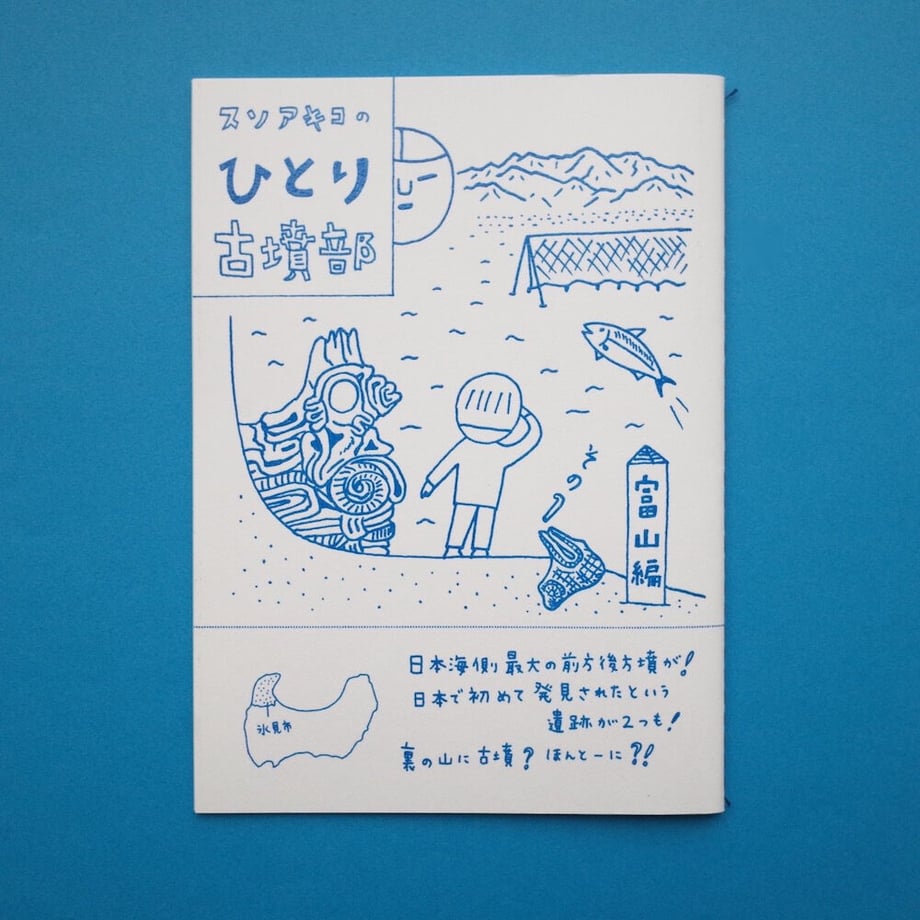 スソアキコの
ひとり
古墳部
その1
富山編
氷見市
日本海側最大の前方後方墳が!
日本で初めて発見されたという
遺跡が2つも!
裏の山に古墳? ほんとーに?!